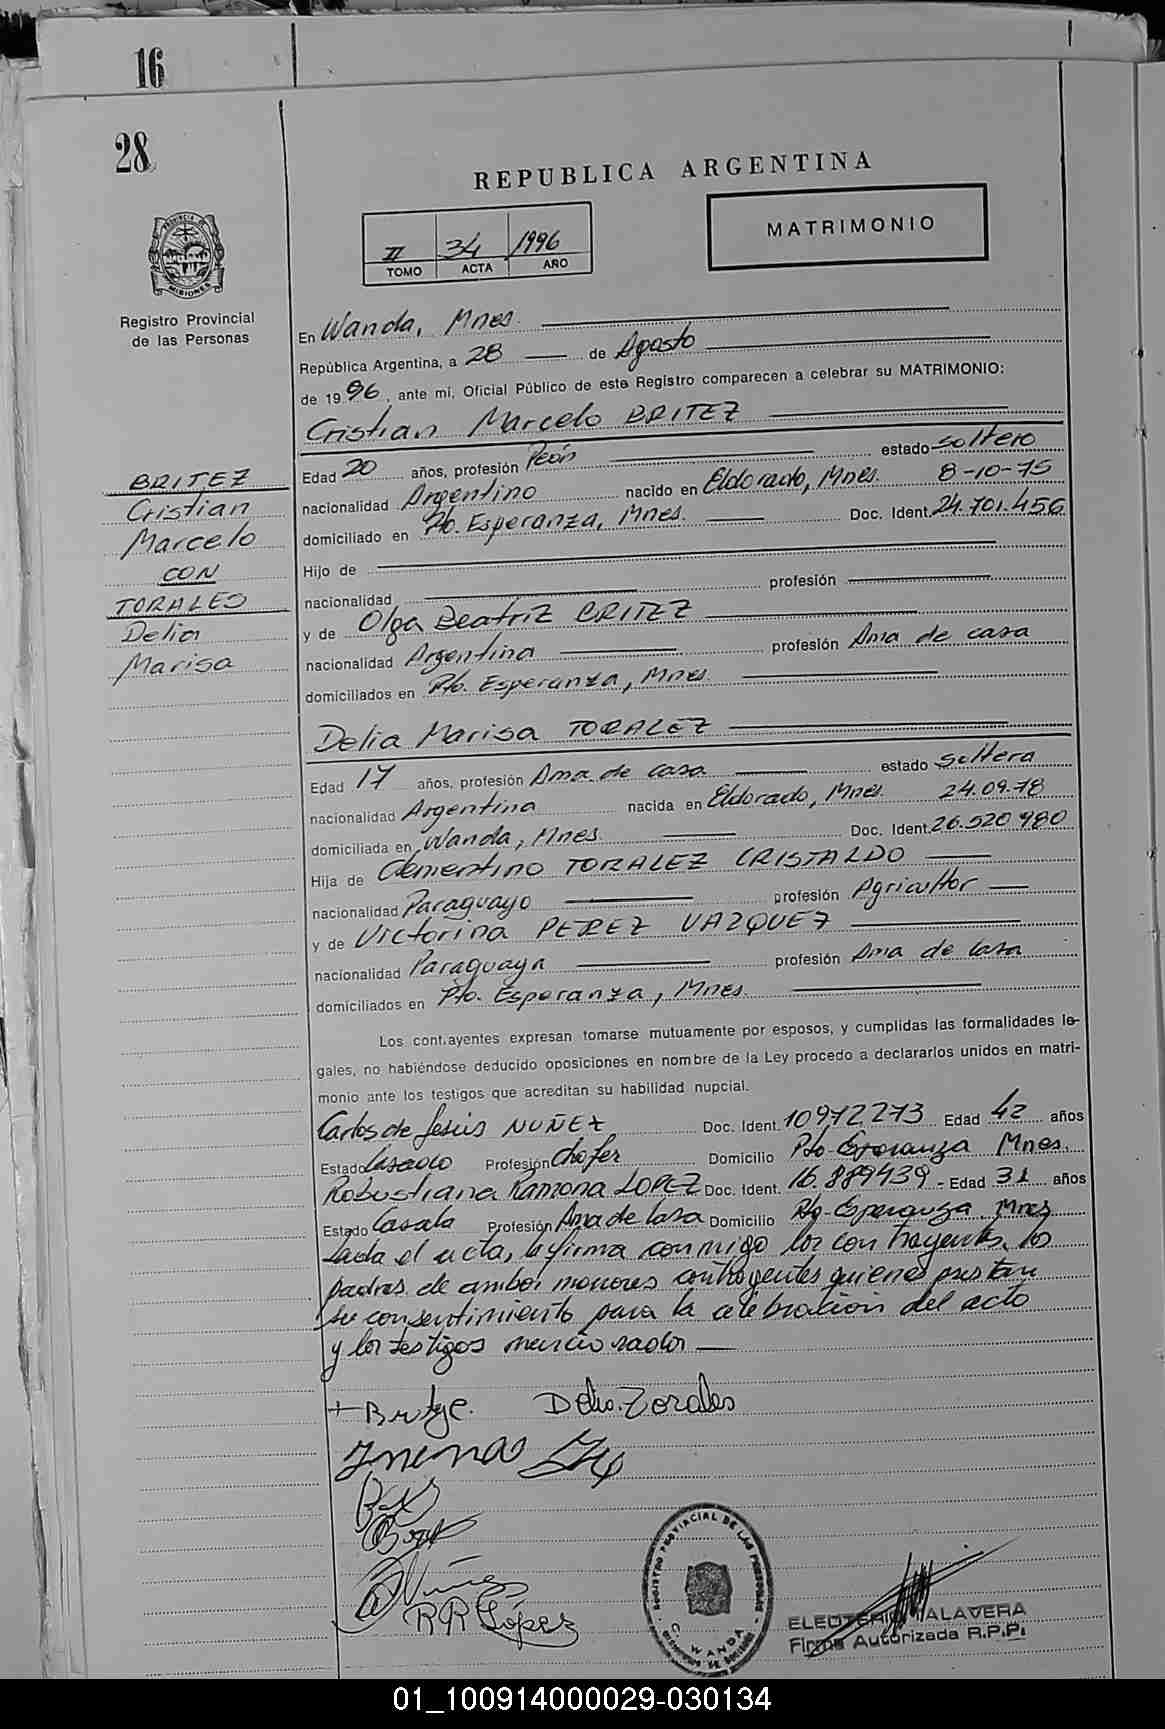 16
28
REPUBLICA ARGENTINA
II 34 1996
TOMO ACTA AÑO
MATRIMONIO
PROVINCIA DE MISIONES
Registro Provincial
de las Personas
En Wanda, Mnes.
República Argentina, a 28 de Agosto
de 1996, ante mi, Oficial Público de este Registro comparecen a celebrar su MATRIMONIO:
Cristian Marcelo BRITEZ
BRITEZ
Cristian
Marcelo
CON
TORALES
Delia
Marisa
Edad 20 años, profesión Peón estado soltero
nacionalidad Argentino nacido en Eldorado, Mnes. 8-10-75
domiciliado en Pto. Esperanza, Mnes. Doc. Ident. 24.701.456
Hijo de
nacionalidad profesión
y de Olga Beatriz BRITEZ
nacionalidad Argentina profesión Ama de casa
domiciliados en Pto. Esperanza, Mnes.
Delia Marisa TORALEZ
Edad 17 años, profesión Ama de casa estado soltera
nacionalidad Argentina nacida en Eldorado, Mnes. 24.09.78
domiciliada en Wanda, Mnes. Doc. Ident. 26.520.980
Hija de Clementino TORALEZ CRISTALDO
nacionalidad Paraguayo profesión Agricultor
y de Victorina PEREZ VAZQUEZ
nacionalidad Paraguaya profesión Ama de Casa
domiciliados en Pto. Esperanza, Mnes.
Los contrayentes expresan tomarse mutuamente por esposos, y cumplidas las formalidades le-
gales, no habiéndose deducido oposiciones en nombre de la Ley procedo a declararlos unidos en matri-
monio ante los testigos que acreditan su habilidad nupcial.
Carlos de Jesús NUÑEZ Doc. Ident. 10972273 Edad 42 años
Estado Casado Profesión Chofer Domicilio Pto-Esperanza Mnes.
Robustiana Ramona LOPEZ Doc. Ident. 16.889439 - Edad 31 años
Estado Casada Profesión Ama de Casa Domicilio Pto-Esperanza Mnes
Leída el acta, la firma conmigo los contrayentes, los
padres de ambos menores contrayentes quienes prestan
su consentimiento para la celebración del acto
y los testigos mencionados
Delia Torales
Nuñez
RR López
REGISTRO PROVINCIAL DE LAS PERSONAS
WANDA
ELEOTERIO TALAVERA
Firma Autorizada R.P.P.
01_100914000029-030134